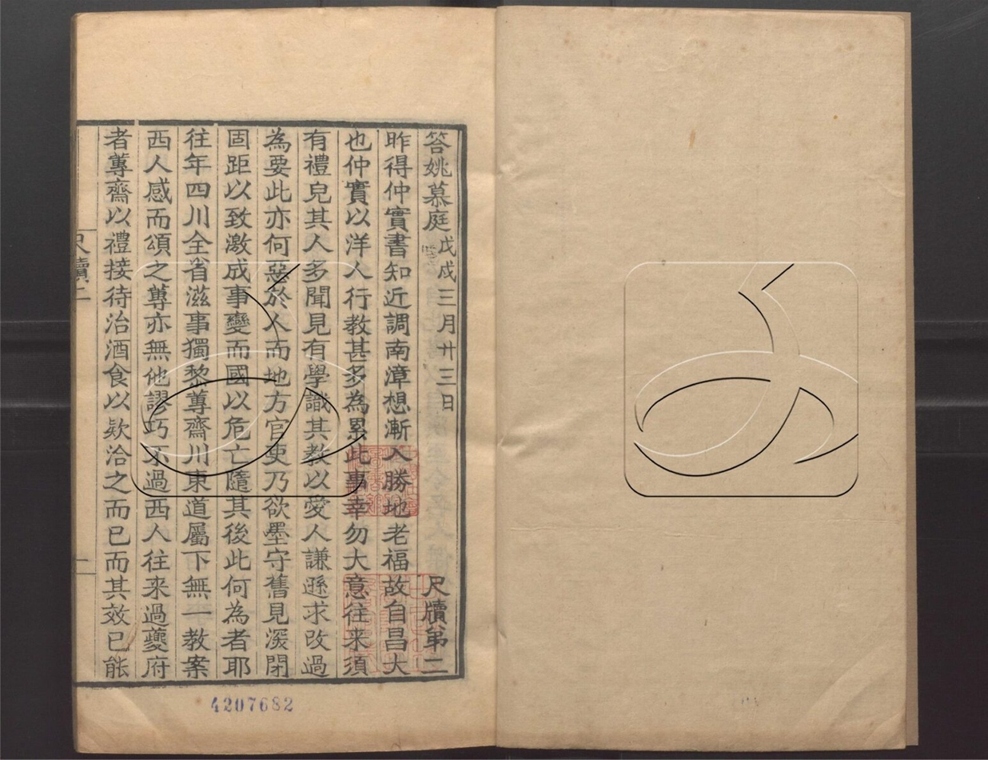 答姚慕庭戊戌三月廿三日 尺牘第二
昨得仲實書知近調南漳想漸入勝地老福故自昌大
也仲實以洋人行教甚多為累此事幸勿大意往来須
有禮皃其人多聞見有學識其教以愛人謙遜求改過
為要此亦何惡於人而地方官吏乃欲墨守舊見深閉
固距以致激成事變而國以危亡隨其後此何為者耶
往年四川全省滋事獨黎蓴齋川東道屬下無一教案
西人感而頌之蓴亦無他謬巧不過西人往来過夔府
者蓴齋以禮接待治酒食以欵洽之而已而其效已能
尺牘二
一
4207682